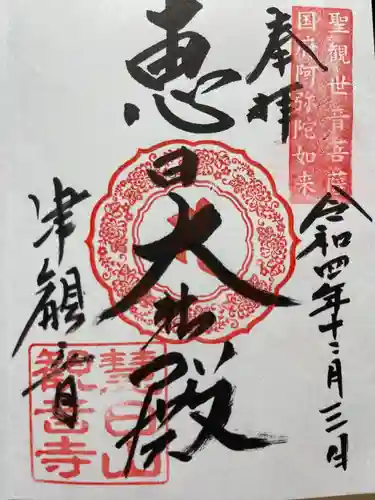 聖觀世音菩薩
国府阿弥陀如来
奉拝
令和四年十二月三日
恵日大悲殿
津観音
恵日山
観音寺